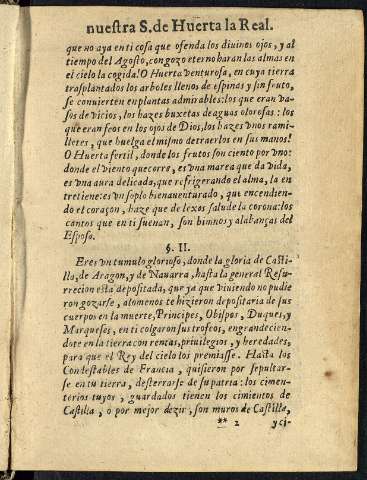 nuestra S. de Huerta la Real.
que no aya en ti cosa que ofenda los diuinos ojos, y al
tiempo del Agosto, con gozo eterno haran las almas en
el cielo la cogida! O Huerta venturosa, en cuya tierra
trasplantados los arboles llenos de espinas y sin fruto,
se conuierten en plantas admirables: los que eran va-
sos de vicios, los hazes buxetas de aguas olorosas: los
que eran feos en los ojos de Dios, los hazes vnos rami-
lletes, que huelga el mismo de traerlos en sus manos!
O Huerta fertil, donde los frutos son ciento por vno:
donde el viento que corre, es vna marea que da vida,
es vna aura delicada, que refrigerando el alma, la en
tretiene: es vn soplo bienauenturado, que encendien-
do el coraçon, haze que de lexos salude la corona: los
cantos que en ti suenan, son himnos y alabanças del
Esposo.
§. II.
Eres vn tumulo glorioso, donde la gloria de Casti-
lla, de Aragon, y de Nauarra, hasta la general Resu-
rrecion esta depositada, que ya que viniendo no pudie
ron gozarse, alomenos te hizieron depositaria de sus
cuerpos en la muerte, Principes, Obispos, Duques, y
Marqueses, en ti colgaron sus trofeos, engrandecien-
dote en la tierra con rentas, priuilegios, y heredades,
para que el Rey del cielo los premiasse. Hasta los
Contestables de Francia, quisieron por sepultar-
se en tu tierra, desterrarse de su patria: los cimen-
terios tuyos, guardados tienen los cimientos de
Castilla, o por mejor dezir, son muros de Castilla,
** 2 yci-